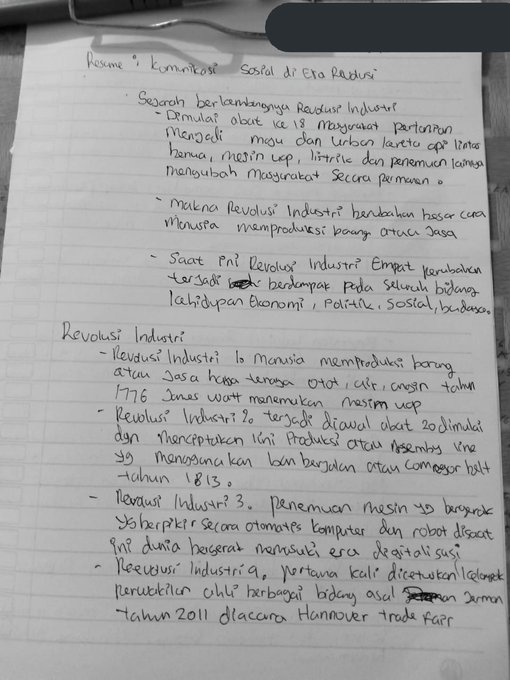 Resume : Komunikasi Sosial di Era Revolusi
Sejarah berkembangnya Revolusi Industri
- Dimulai abat ke 18 Masyarakat pertanian
Menjadi maju dan urban kereta api lintas
benua, mesin uap, listrik dan penemuan lainnya
mengubah Masyarakat Secara permanen.
- makna Revolusi Industri berubahan besar cara
Manusia memproduksi barang atau Jasa
- Saat ini Revolusi Industri Empat perubahan
terjadi berdampak pada seluruh bidang
kehidupan Ekonomi, Politik, Sosial, budaya.
Revolusi Industri
- Revolusi Industri 1. Manusia memproduksi barang
atau Jasa hanya tenaga otot, air, angin tahun
1776 James Watt menemukan mesin uap
- Revolusi Industri 2. terjadi diawal abat 20 dimulai
dgn menciptakan lini Produksi atau Assemby line
yg menggunakan ban berjalan atau belt
tahun 1813.
- Revolusi Industri 3. penemuan mesin yg bergerak
yg berpikir Secara otomatis Komputer dan robot disaat
ini dunia bergerak memasuki era digitalisasi
- Revolusi Industri 4. pertama kali dicetuskan kelompok
perwakilan ahli berbagai bidang asal Jerman
tahun 2011 diacara Hannover trade fair